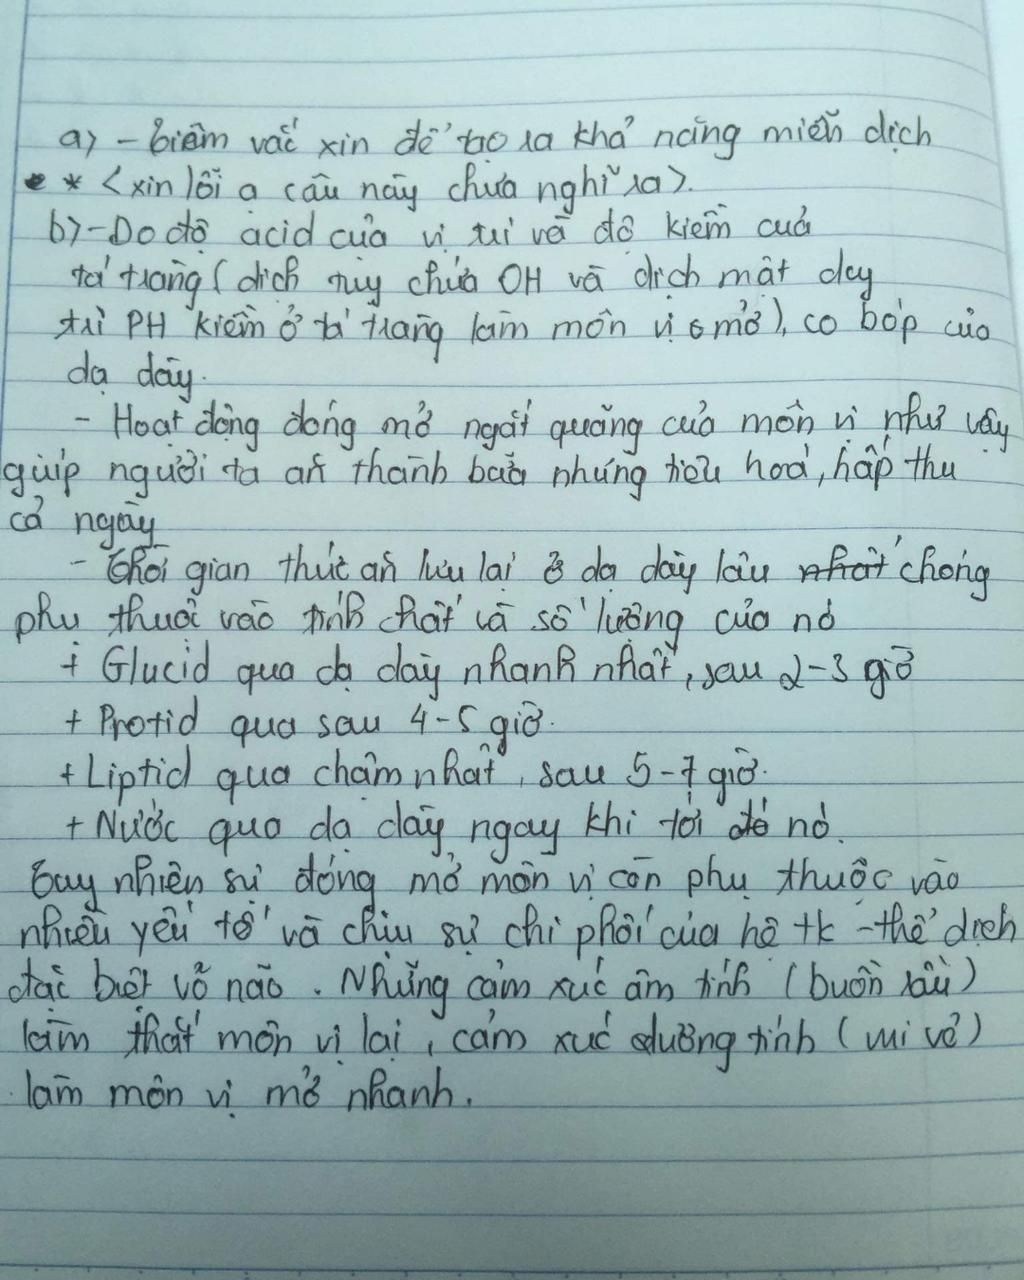 a) - Tiêm vắc xin để tạo ra khả năng miễn dịch
* <xin lỗi a câu này chưa nghĩ ra>.
b) - Do độ acid của vị trí và độ kiềm của
tá tràng (dịch tụy chứa OH và dịch mật duy
trì PH kiềm ở tá tràng làm môn vị mở), co bóp của
dạ dày.
- Hoạt động đóng mở ngắt quãng của môn vị như vậy
giúp người ta ăn thành bữa nhưng tiêu hoá, hấp thu
cả ngày
- Thời gian thức ăn lưu lại ở dạ dày lâu chóng
phụ thuộc vào tính chất và số lượng của nó
+ Glucid qua dạ dày nhanh nhất, sau 2-3 giờ
+ Protid qua sau 4-5 giờ.
+ Liptid qua chậm nhất, sau 5-7 giờ.
+ Nước qua dạ dày ngay khi tới nó.
Tuy nhiên sự đóng mở môn vị còn phụ thuộc vào
nhiều yếu tố và chịu sự chi phối của hệ tk - thể dịch
đặc biệt vỏ não. Những cảm xúc âm tính (buồn rầu)
làm thắt môn vị lại, cảm xúc dương tính (vui vẻ)
làm môn vị mở nhanh.